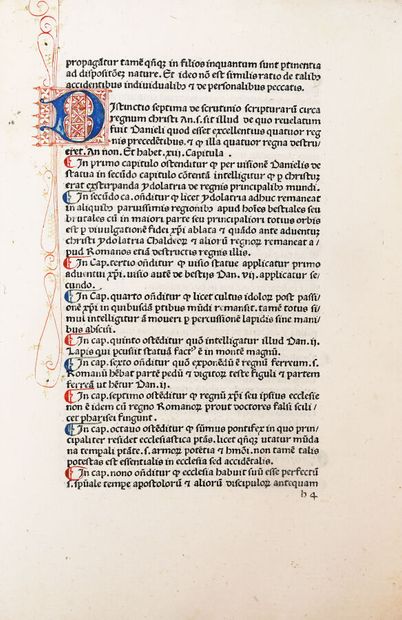 propagātur tamē qñqꝫ in filios inquantum sunt ꝑtinentia
ad dispositōeꝫ nature. Et ideo nō est similis ratio de talibꝫ
accidentibus individualibꝫ & de personalibus peccatis.
DIstinctio septima de scrutinio scripturarū circa
regnum christi An.s. sit illud de quo revelatum
fuit Danieli quod esset excellentius quatuor reg
nis precedētibus. & ꝙ illa quatuor regna destru/
eret. An non. Et habet .xvij. Capitula.
In primo capitulo ostenditur ꝙ per visionē Danielis de
statua in secūdo capitulo cōtentā intelligitur ꝙ ꝑ christuꝫ
erat exstirpanda ydolatria de regnis principalibꝫ mundi.
In secūdo ca. oñditur ꝙ licet ydolatria adhuc remaneat
in aliquibꝫ parvissimis regionibꝫ apud hoīes bestiales seu
brutales cū in maiori parte seu principaliori totius orbis
est ꝑ divulgationē fidei xp̄i ablata & quādo ante adventuꝫ
christi ydolatria Chaldeoꝝ & alioꝝ regnoꝝ remaneat a/
pud Romanos etiā destructis regnis illis.
In Cap. tertio oñditur ꝙ visio statue applicatur primo
adventui xp̄i. visio autē de bestijs Dan. vij. applicatur se/
cundo.
In Cap. quarto oñditur ꝙ licet cultus idoloꝝ post passi/
onē xp̄i in quibusdā ꝑtibus mūdi remansit. tamē totus si/
mul intelligitur ā moveri ꝑ percussionē lapidis sine mani/
bus abscisi.
In cap. quinto ostēditur quō intelligatur illud Dan. ij.
Lapis qui ꝑcussit statuā factꝰ ē in montē magnū.
In cap. sexto oñditur quō exponēdū ē regnū ferreum .s.
Romanū hēbat partē pedū & digitoꝝ teste figuli & partem
ferreā ut hētur Dan. ij.
In cap. septimo ostēditur ꝙ regnū xp̄i seu ipsius ecclesie
non ē idem cū regno Romanoꝝ prout doctores falsi scili/
cet pharisei fingunt.
In cap. octavo ostēditur ꝙ sūmus pontifex in quo prin/
cipaliter residet ecclesiastica ptās. licet qñqꝫ utatur mūda
na tempali ptāte .s. armoꝝ potētia & hmōi. non talis tamē
potestas est essentialis in ecclesia sed accidētalis.
In cap. nono oñditur ꝙ ecclesia habuit suū esse perfectū
.s. spūale tempe apostoloꝝ & alioꝝ discipuloꝝ antequam
h 4